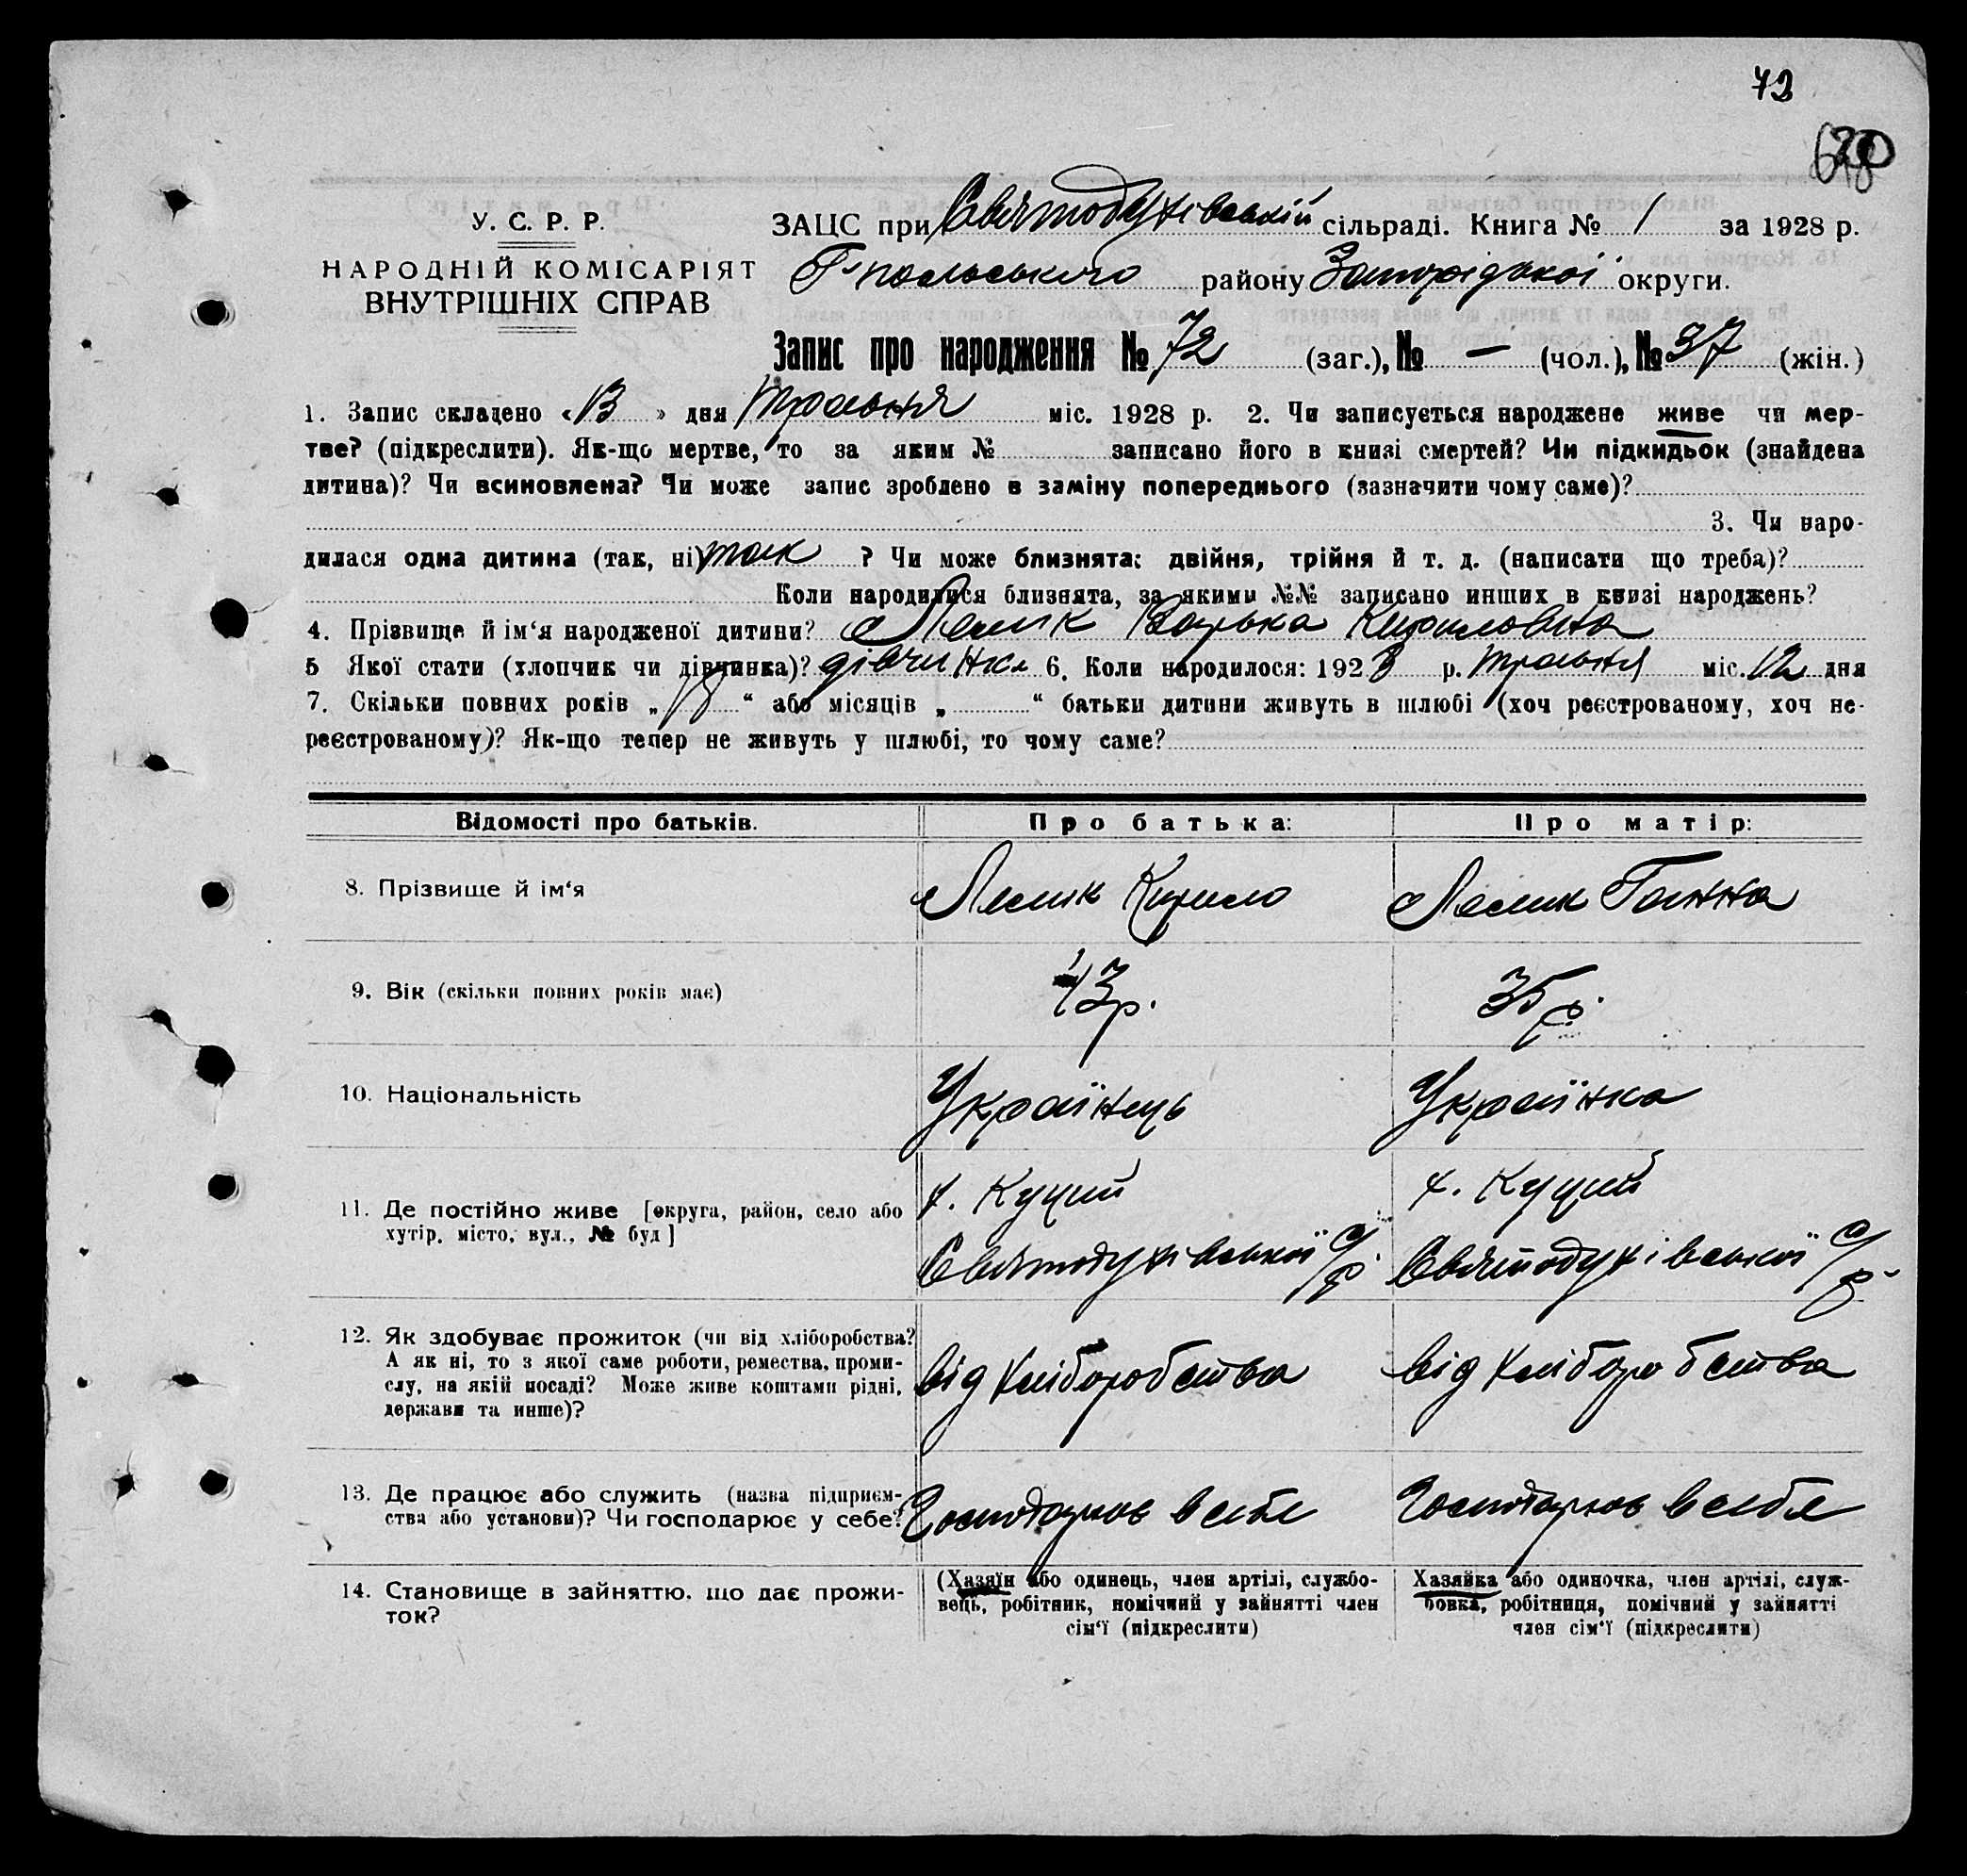 72
У. С. Р. Р.
НАРОДНІЙ КОМІСАРІЯТ
ВНУТРІШНІХ СПРАВ
ЗАЦС при Святодухівській сільраді. Книга № 1 за 1928 р.
Г-польського району Запорізької округи.
Запис про народження № 72 (заг.), № — (чол.), № 37 (жін.)
1. Запис складено «13» дня травня міс. 1928 р. 2. Чи записується народжене живе чи мер-
тве? (підкреслити). Як-що мертве, то за яким № записано його в книзі смертей? Чи підкидьок (знайдена
дитина)? Чи всиновлена? Чи може запис зроблено в заміну попереднього (зазначити чому саме)?
3. Чи наро-
дилася одна дитина (так, ні) так ? Чи може близнята: двійня, трійня й т. д. (написати що треба)?
Коли народилися близнята, за якими №№ записано инших в книзі народжень?
4. Прізвище й ім'я народженої дитини? Лелик Варька Кириловна
5 Якої стати (хлопчик чи дівчинка)? дівчинка 6. Коли народилося: 1928 р. травня міс. 12 дня
7. Скільки повних років „ 18 “ або місяців „ “ батьки дитини живуть в шлюбі (хоч реєстрованому, хоч не-
реєстрованому)? Як-що тепер не живуть у шлюбі, то чому саме?
Відомості про батьків. Про батька: Про матір:
8. Прізвище й ім'я Лелик Кирило Лелик Ганна
9. Вік (скільки повних років має) 43 р. 35 р.
10. Національність Українець Українка
11. Де постійно живе [округа, район, село або
хутір, місто, вул., № буд]
х. Куций
Святодухівської с/р.
х. Куций
Святодухівської с/р.
12. Як здобуває прожиток (чи від хліборобства?
А як ні, то з якої саме роботи, ремества, проми-
слу, на якій посаді? Може живе коштами рідні,
держави та инше)?
від хліборобства
від хліборобства
13. Де працює або служить (назва підприєм-
ства або установи)? Чи господарює у себе?
Господарює в себе
Господарює в себе
14. Становище в зайняттю, що дає прожи-
ток?
(Хазяїн або одинець, член артілі, службо-
вець, робітник, помічний у зайнятті член
сім'ї (підкреслити)
Хазяйка або одиночка, член артілі, служ-
бовка, робітниця, помічний у зайнятті
член сім'ї (підкреслити)